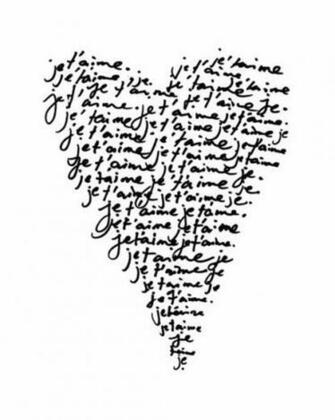 je t'aime. je t'aime
je t'aime, je. je t'aime.
je t'aime. je t'aime je t'aime
je t'aime je t'aime je.
je t'aime je t'aime je t'aime.
je t'aime je t'aime je t'aime je
je t'aime je t'aime je t'aime
je t'aime je t'aime je t'aime
je t'aime je t'aime je.
je t'aime je t'aime je
je t'aime je t'aime je.
je t'aime je t'aime.
je t'aime je t'aime
je t'aime je t'aime.
je t'aime je
je t'aime je
je t'aime je
je t'aime.
je t'aime
je t'aime
je
t'aime
je